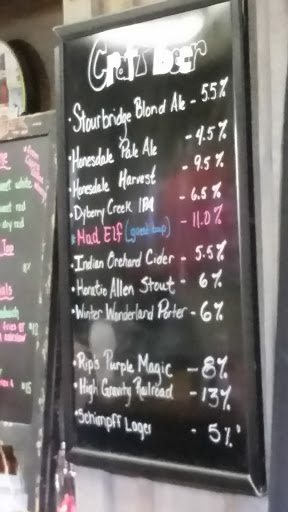 Craft Beer
• Stourbridge Blond Ale - 5.5%
• Honesdale Pale Ale - 4.5%
• Honesdale Harvest - 9.5%
• Dyberry Creek IPA - 6.5%
• Mad Elf (guest tap) - 11.0%
• Indian Orchard Cider - 5.5%
• Horatio Allen Stout - 6%
• Winter Wonderland Porter - 6%
• Rip's Purple Magic - 8%
• High Gravity Railroad - 13%
• Schimpff Lager - 5%
sweet white
sweet red
dry red
Tap